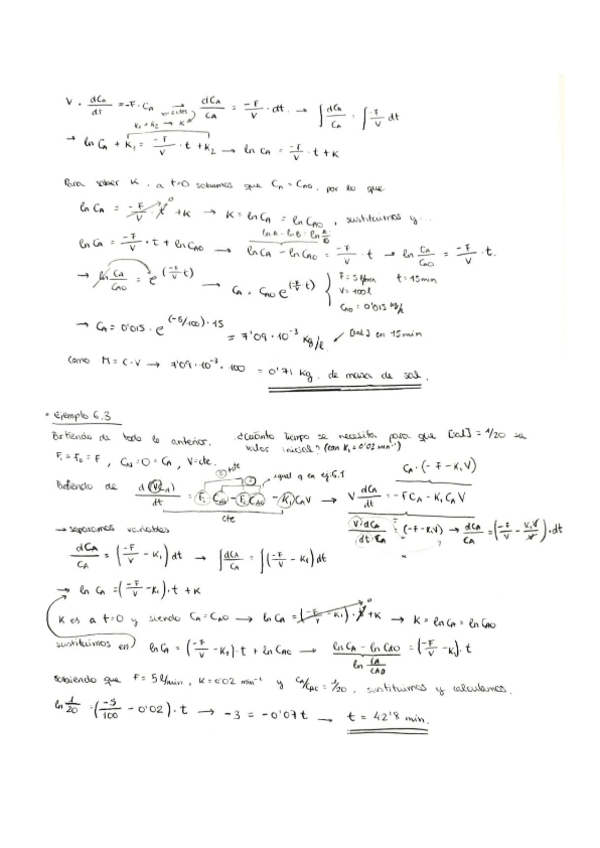 V · dCA/dt = -F · CA → dCA/CA = -F/V · dt. → ∫ dCA/CA = ∫ -F/V dt
K1 + K2 → K
→ ln CA + K1 = -F/V · t + K2 → ln CA = -F/V · t + K
Para saber K, a t=0 sabemos que CA = CA0, por lo que
ln CA = -F/V · t + K → K = ln CA = ln CA0, sustituimos y...
ln A - ln B = ln A/B
ln CA = -F/V · t + ln CA0 → ln CA - ln CA0 = -F/V · t → ln CA/CA0 = -F/V · t.
→ ln CA/CA0 = e^(-F/V t) → CA = CA0 e^(-F/V t) F = 5 l/min t = 15min
V = 100l
CA0 = 0'015 kg/l
→ CA = 0'015 · e^(-5/100)·15 = 7'09 · 10^-3 kg/l ✓ [sal] en 15min
Como M = C·V → 7'09·10^-3 · 100 = 0'71 kg. de masa de sal.
· Ejemplo 6.3
Partiendo de todo lo anterior. ¿cuánto tiempo se necesita para que [sal] = 1/20 su
valor inicial? (con K1 = 0'02 min^-1)
F1 = F0 = F, = 0 = CA, V=cte.
igual q en ej:6.1
CA · (-F - K1 V)
Partiendo de d(VCA)/dt = - - K1 CA V → V dCA/dt = -F CA - K1 CA V
cte
V·dCA/dt·CA = (-F - K1V) → dCA/CA = (-F/V - K1V/V) · dt
→ separamos variables
dCA/CA = (-F/V - K1) dt → ∫ dCA/CA = ∫ (-F/V - K1) dt
→ ln CA = (-F/V - K1) · t + K
K es a t=0 y siendo CA = CA0 → ln CA = (-F/V - K1) · t + K → K = ln CA = ln CA0
sustituimos en ln CA = (-F/V - K1) · t + ln CA0 → ln CA - ln CA0 = (-F/V - K1) · t
ln CA/CA0
Sabiendo que F = 5 l/min, K = 0'02 min^-1 y CA/CA0 = 1/20, sustituimos y calculamos.
ln 1/20 = (-5/100 - 0'02) · t → -3 = -0'07t → t = 42'8 min.